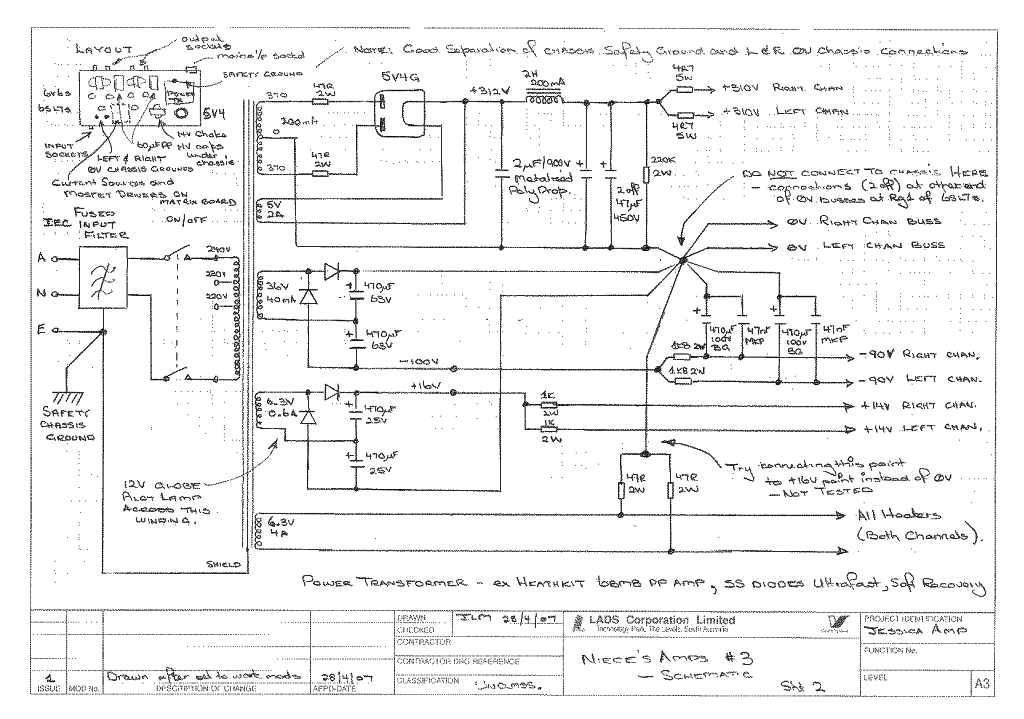 LAYOUT
output
sockets
mains i/p socket
SAFETY GROUND
NOTE: Good Separation of CHASSIS Safety Ground and L&R 0V Chassis Connections
6V6s
6SL7s
Power
TR
5V4
INPUT
SOCKETS
LEFT & RIGHT
0V CHASSIS GROUND
60µF PP
HV Choke
HV caps
under
chassis
Current Sources and
Mosfet Drivers on
MATRIX BOARD
FUSED
IEC INPUT
FILTER
ON/OFF
A
N
E
240V
230V
220V
SAFETY
CHASSIS
GROUND
12V GLOBE
PILOT LAMP
ACROSS THIS
WINDING.
SHIELD
370
200mA
0
370
47R
2W
47R
2W
5V4G
5V
2A
+312V
2H
200mA
4R7
5W
4R7
5W
+310V RIGHT CHAN
+310V LEFT CHAN
2µF/900V
Metalised
Poly Prop.
2 off
47µF
450V
220K
2W
DO NOT CONNECT TO CHASSIS HERE
- connections (2 off) at other end
of 0V busses at Rg1 of 6SL7s.
0V RIGHT CHAN BUSS
0V LEFT CHAN BUSS
36V
40mA
470µF
63V
470µF
63V
-100V
470µF
100V
BG
47nF
MKP
470µF
100V
BG
47nF
MKP
1K8 2W
1K8 2W
-90V RIGHT CHAN.
-90V LEFT CHAN.
6.3V
0.6A
470µF
25V
470µF
25V
+16V
1K
2W
1K
2W
+14V RIGHT CHAN.
+14V LEFT CHAN.
Try connecting this point
to +16V point instead of 0V
- NOT TESTED
47R
2W
47R
2W
6.3V
4A
All Heaters
(Both Channels).
POWER TRANSFORMER - ex HEATHKIT 6BM8 PP AMP, SS DIODES Ultrafast, Soft Recovery
DRAWN JLM 28/4/07
CHECKED
CONTRACTOR
CONTRACTOR DRG REFERENCE
CLASSIFICATION UNCLASS.
LADS Corporation Limited
Technology Park, The Levels, South Australia
NIECE'S AMPS #3
- SCHEMATIC
Sht 2
PROJECT IDENTIFICATION
JESSICA AMP
FUNCTION No.
LEVEL
A3
1 Drawn after add to work mods 28/4/07
ISSUE MOD No. DESCRIPTION OF CHANGE APPD-DATE